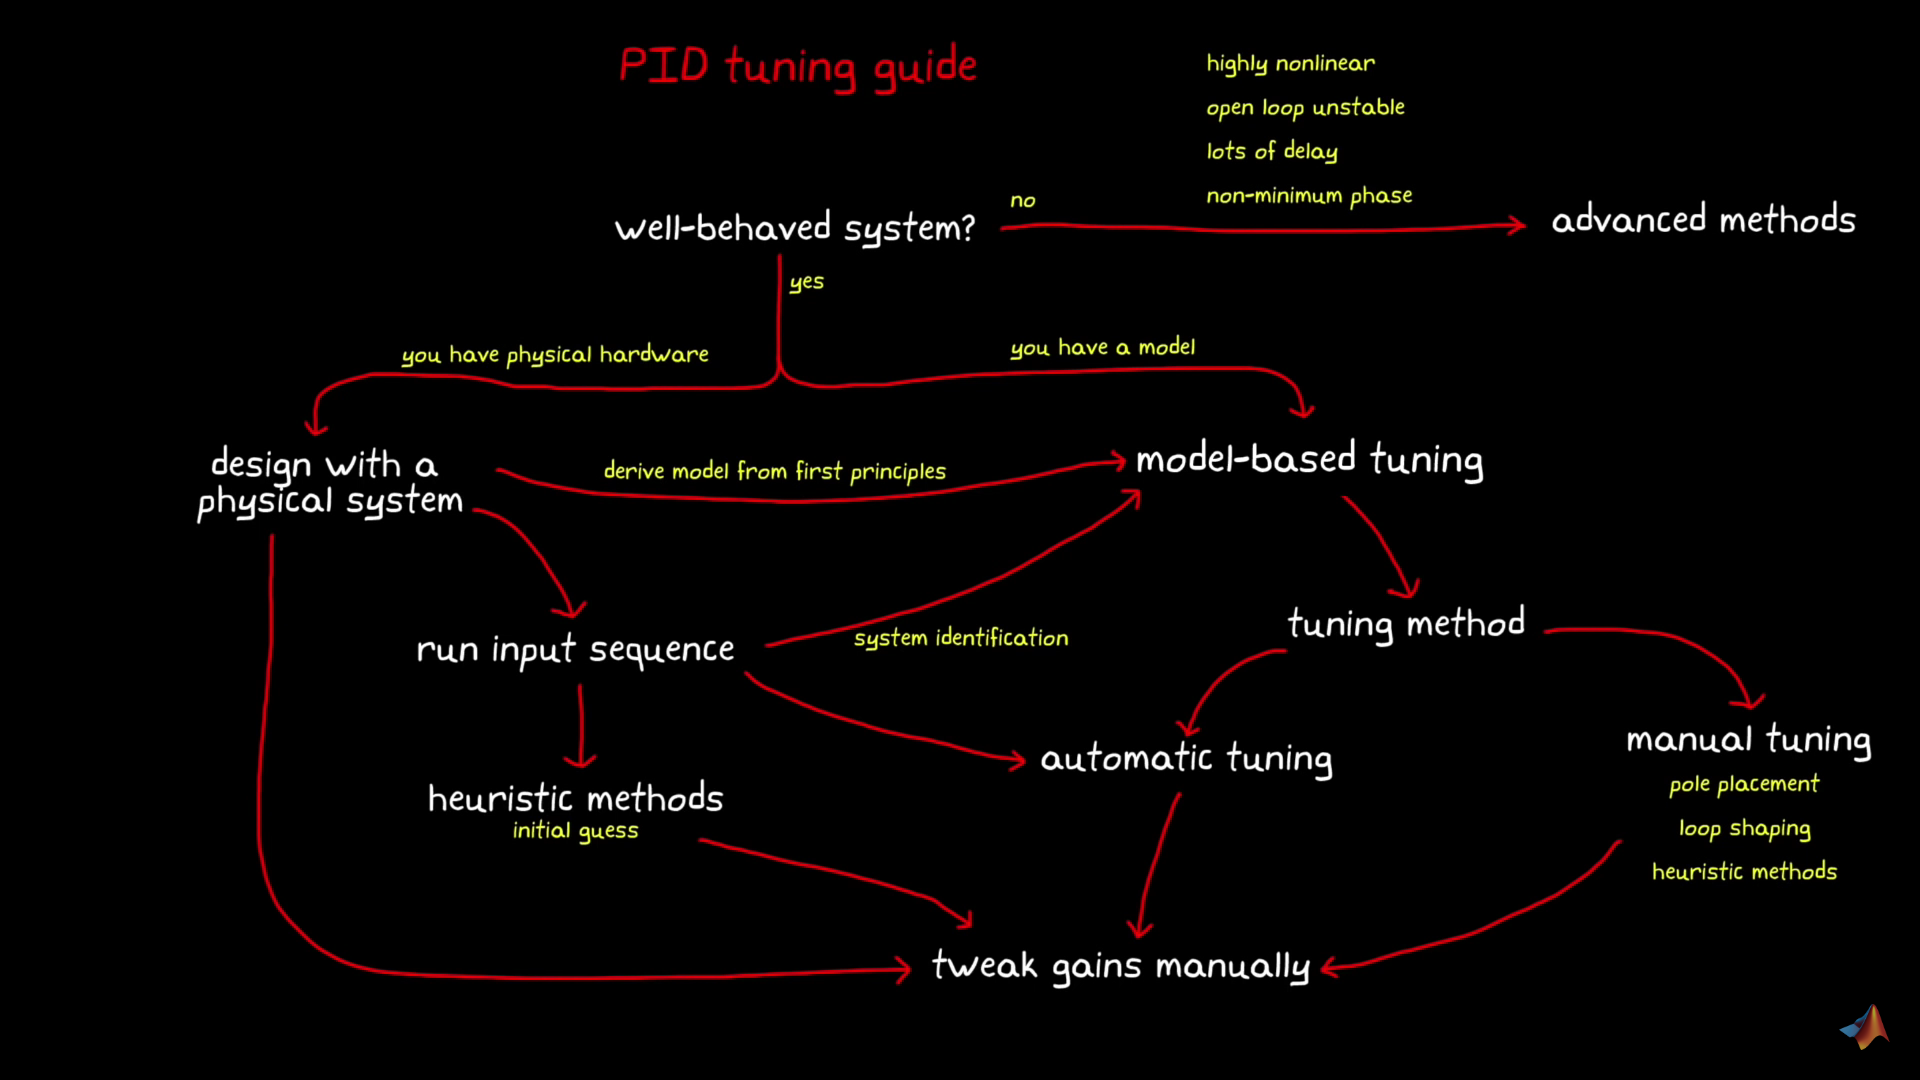 PID tuning guide
highly nonlinear
open loop unstable
lots of delay
non-minimum phase
no
well-behaved system?
advanced methods
yes
you have physical hardware
you have a model
design with a
physical system
derive model from first principles
model-based tuning
run input sequence
system identification
tuning method
heuristic methods
initial guess
automatic tuning
manual tuning
pole placement
loop shaping
heuristic methods
tweak gains manually